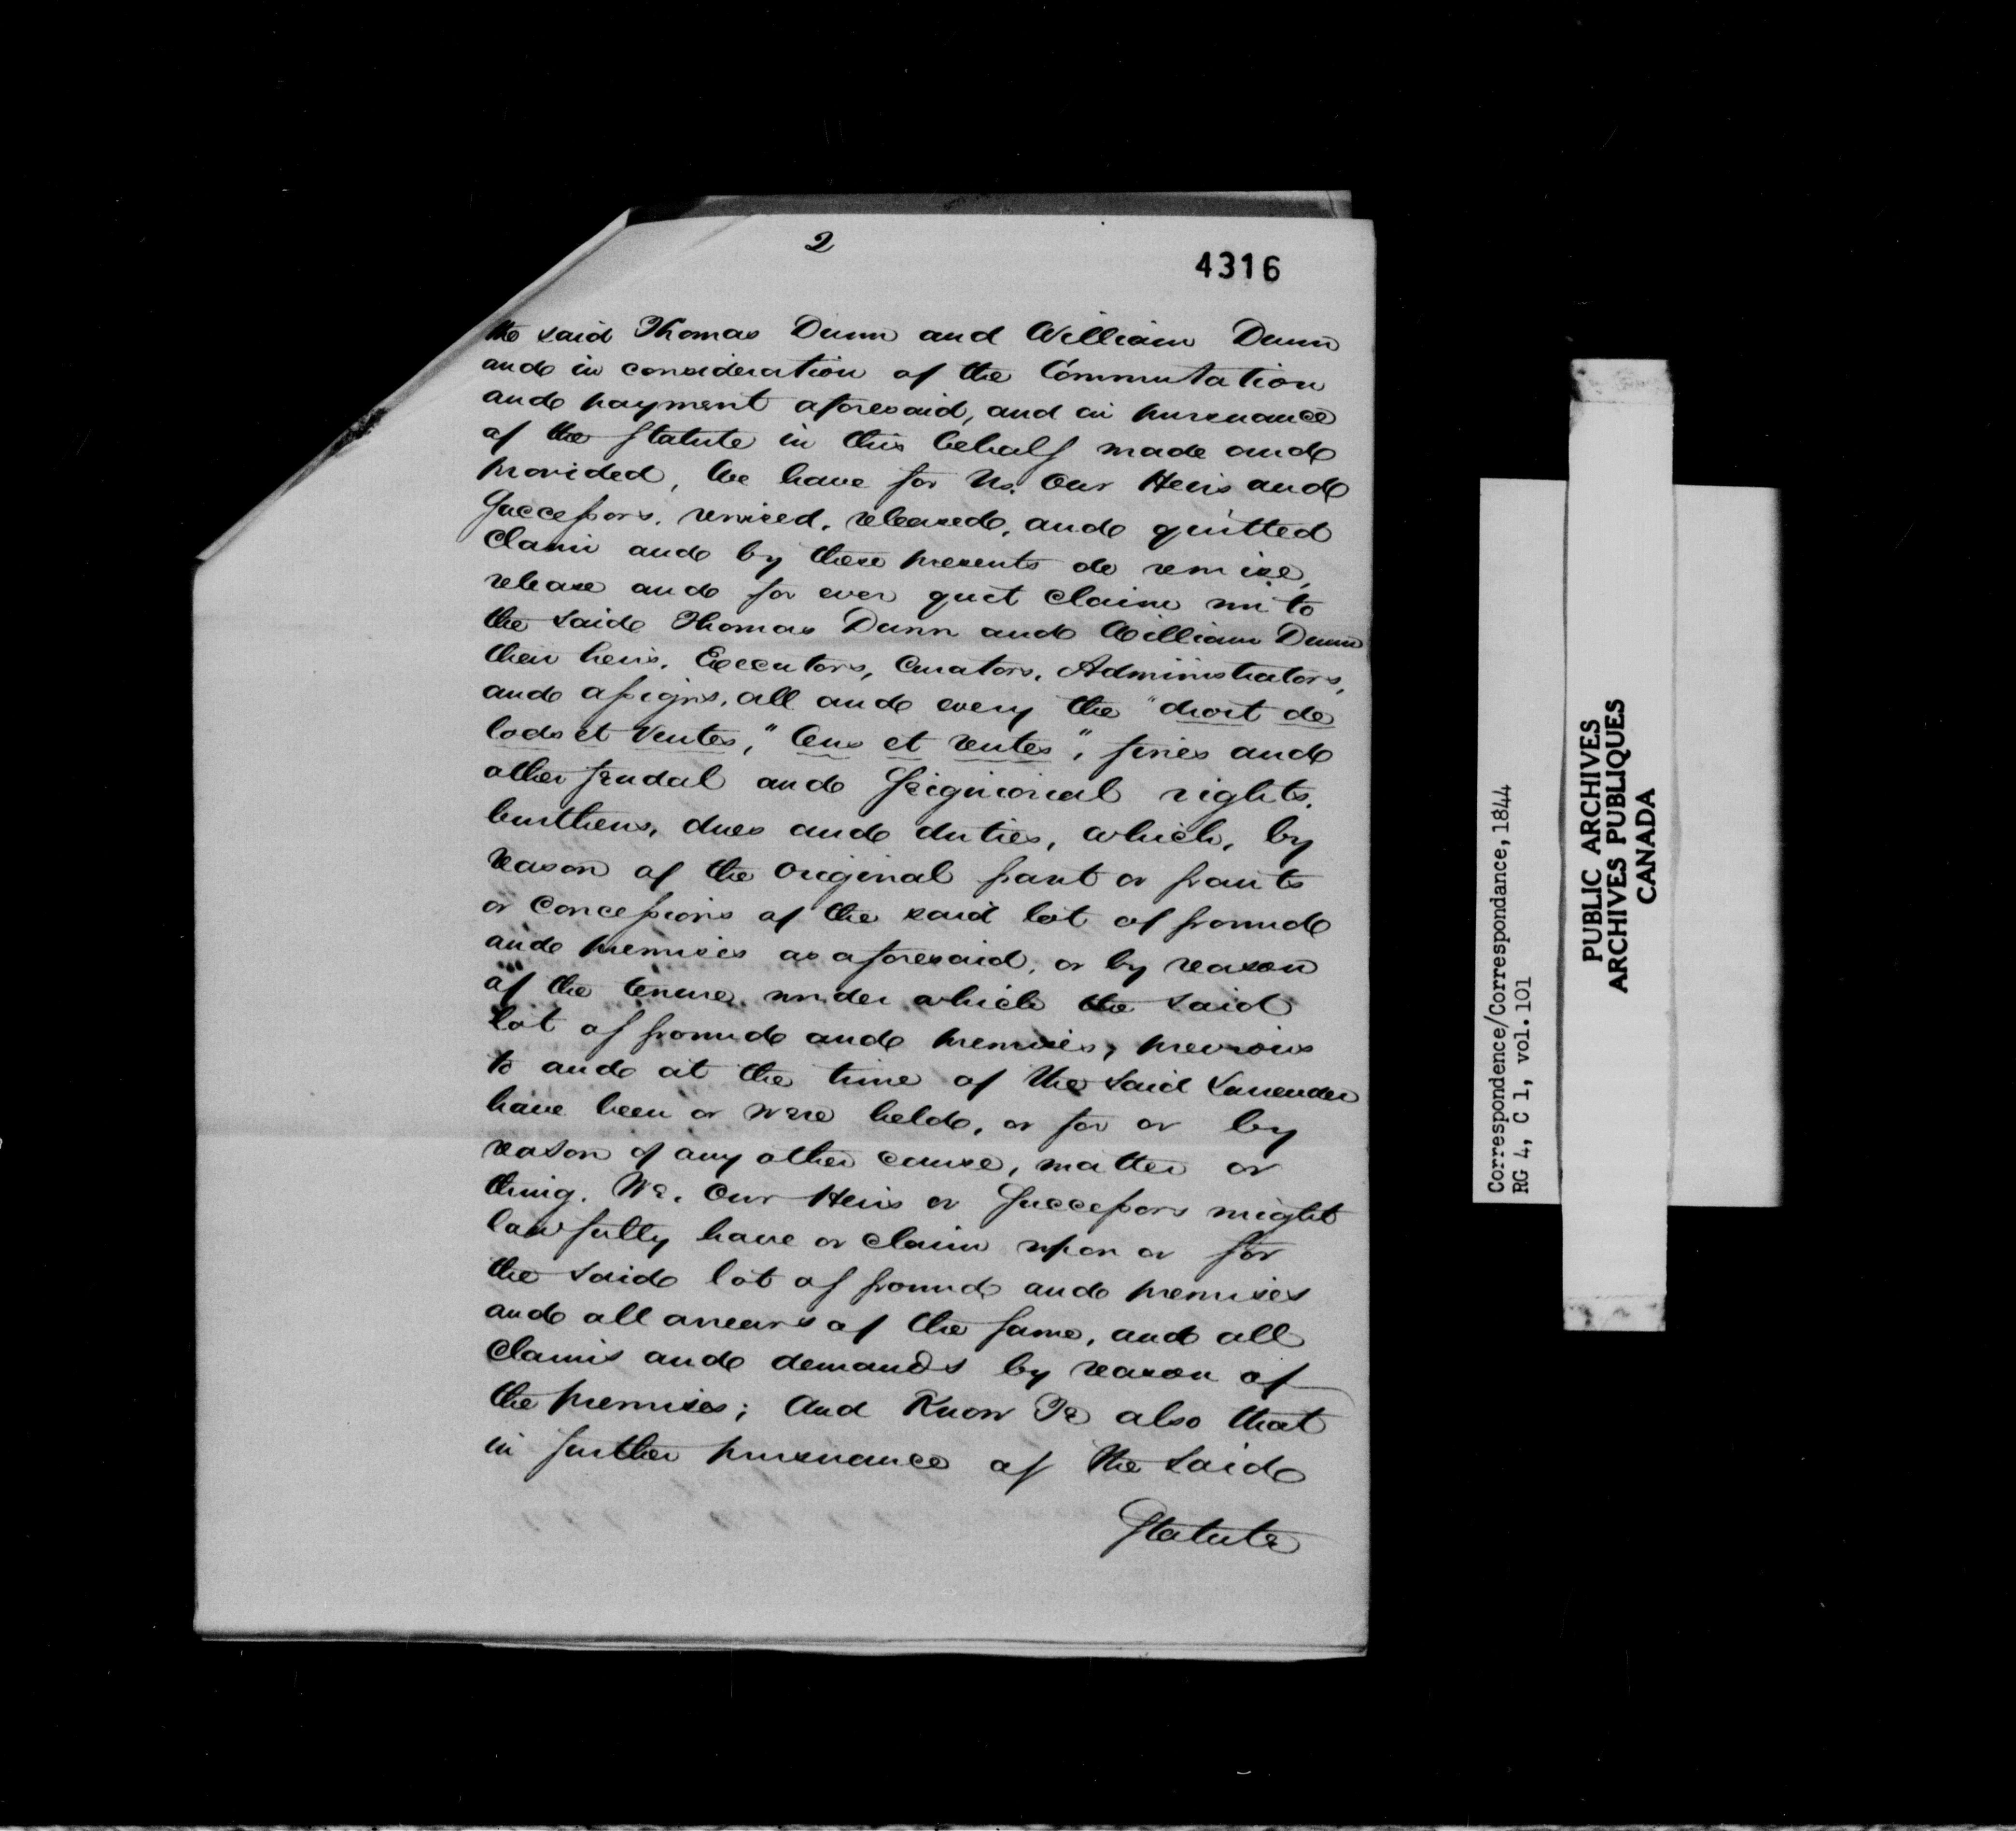 2
4316
the said Thomas Dunn and William Dunn
and in consideration of the Commutation
and payment aforesaid, and in pursuance
of the Statute in this behalf made and
provided, We have for Us. Our Heirs and
Successors, remised, released, and quitted
claim and by these presents do remise,
release and for ever quit claim unto
the said Thomas Dunn and William Dunn
their heirs, Executors, Curators, Administrators,
and assigns, all and every the "droit de
lods et ventes," "Cens et rentes", fines and
other feudal and Seignioral rights,
burthens, dues and duties, which, by
reason of the original grant or grants
or concessions of the said lot of ground
and premises as aforesaid, or by reason
of the tenure under which the said
lot of ground and premises, previous
to and at the time of the said Surrender
have been or were held, or for or by
reason of any other cause, matter or
thing. We, Our Heirs or Successors might
lawfully have or claim upon or for
the said lot of ground and premises
and all arrears of the same, and all
claims and demands by reason of
the premises; And Know Ye also that
in further pursuance of the said
Statute
Correspondence/Correspondance, 1844
RG 4, C 1, vol. 101
PUBLIC ARCHIVES
ARCHIVES PUBLIQUES
CANADA